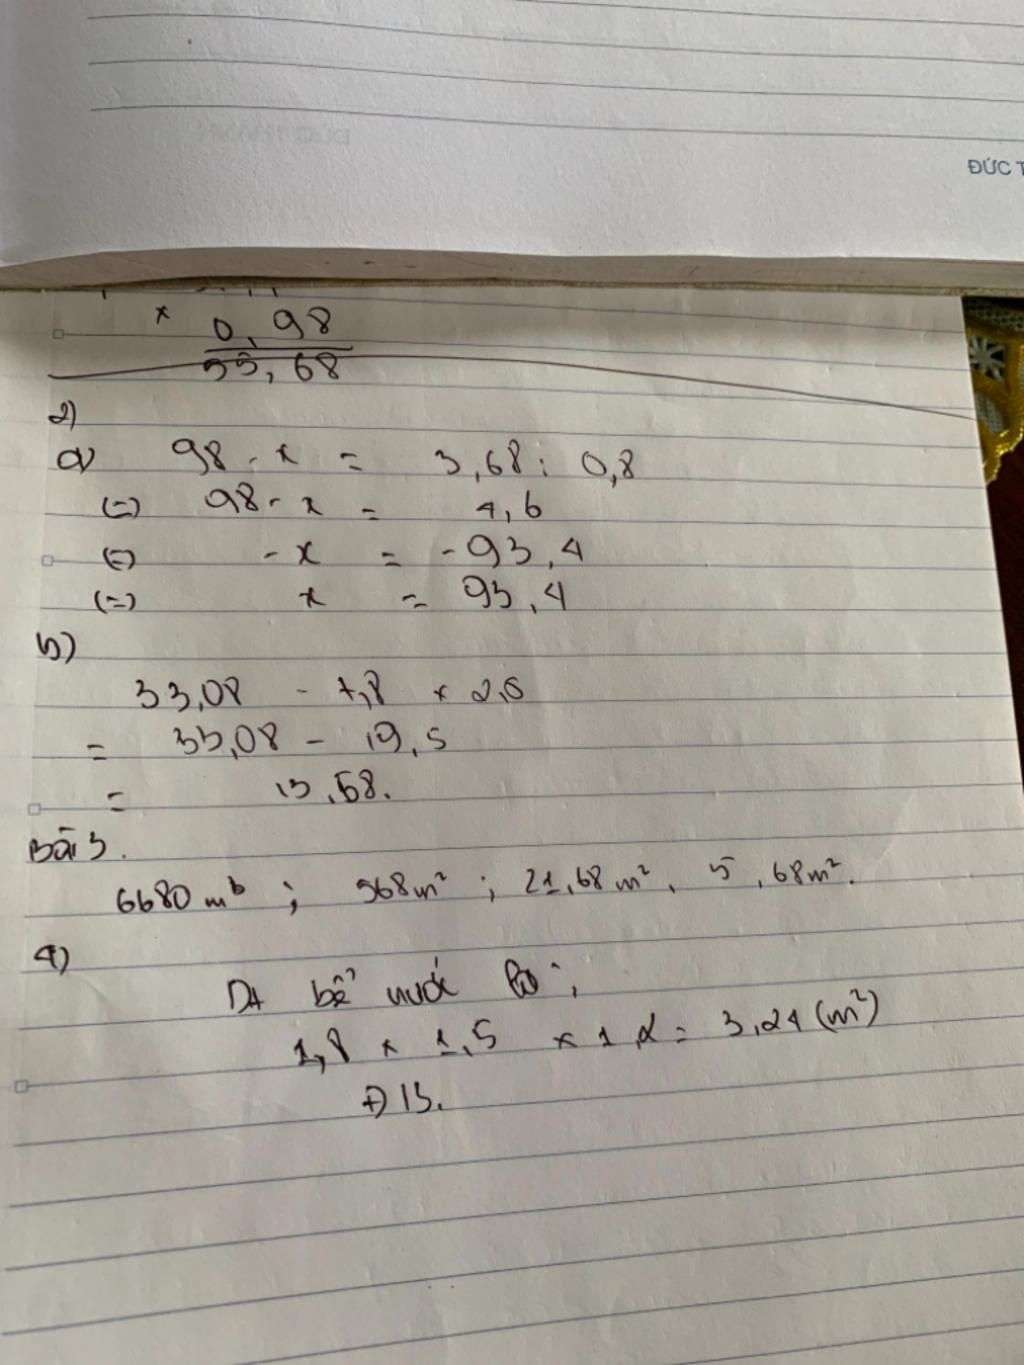 ĐỨC T
x 0,98
55,68
2)
a) 98 - x = 3,68 : 0,8
(=) 98 - x = 4,6
(=) - x = -93,4
(=) x = 93,4
b)
33,08 - 7,8 x 2,5
= 33,08 - 19,5
= 13,58.
Bài 3.
6680 m² ; 568m² ; 21,68 m², 5,68m².
4)
bể nước
1,8 x 1,5 x 1,2 = 3,24 (m²)